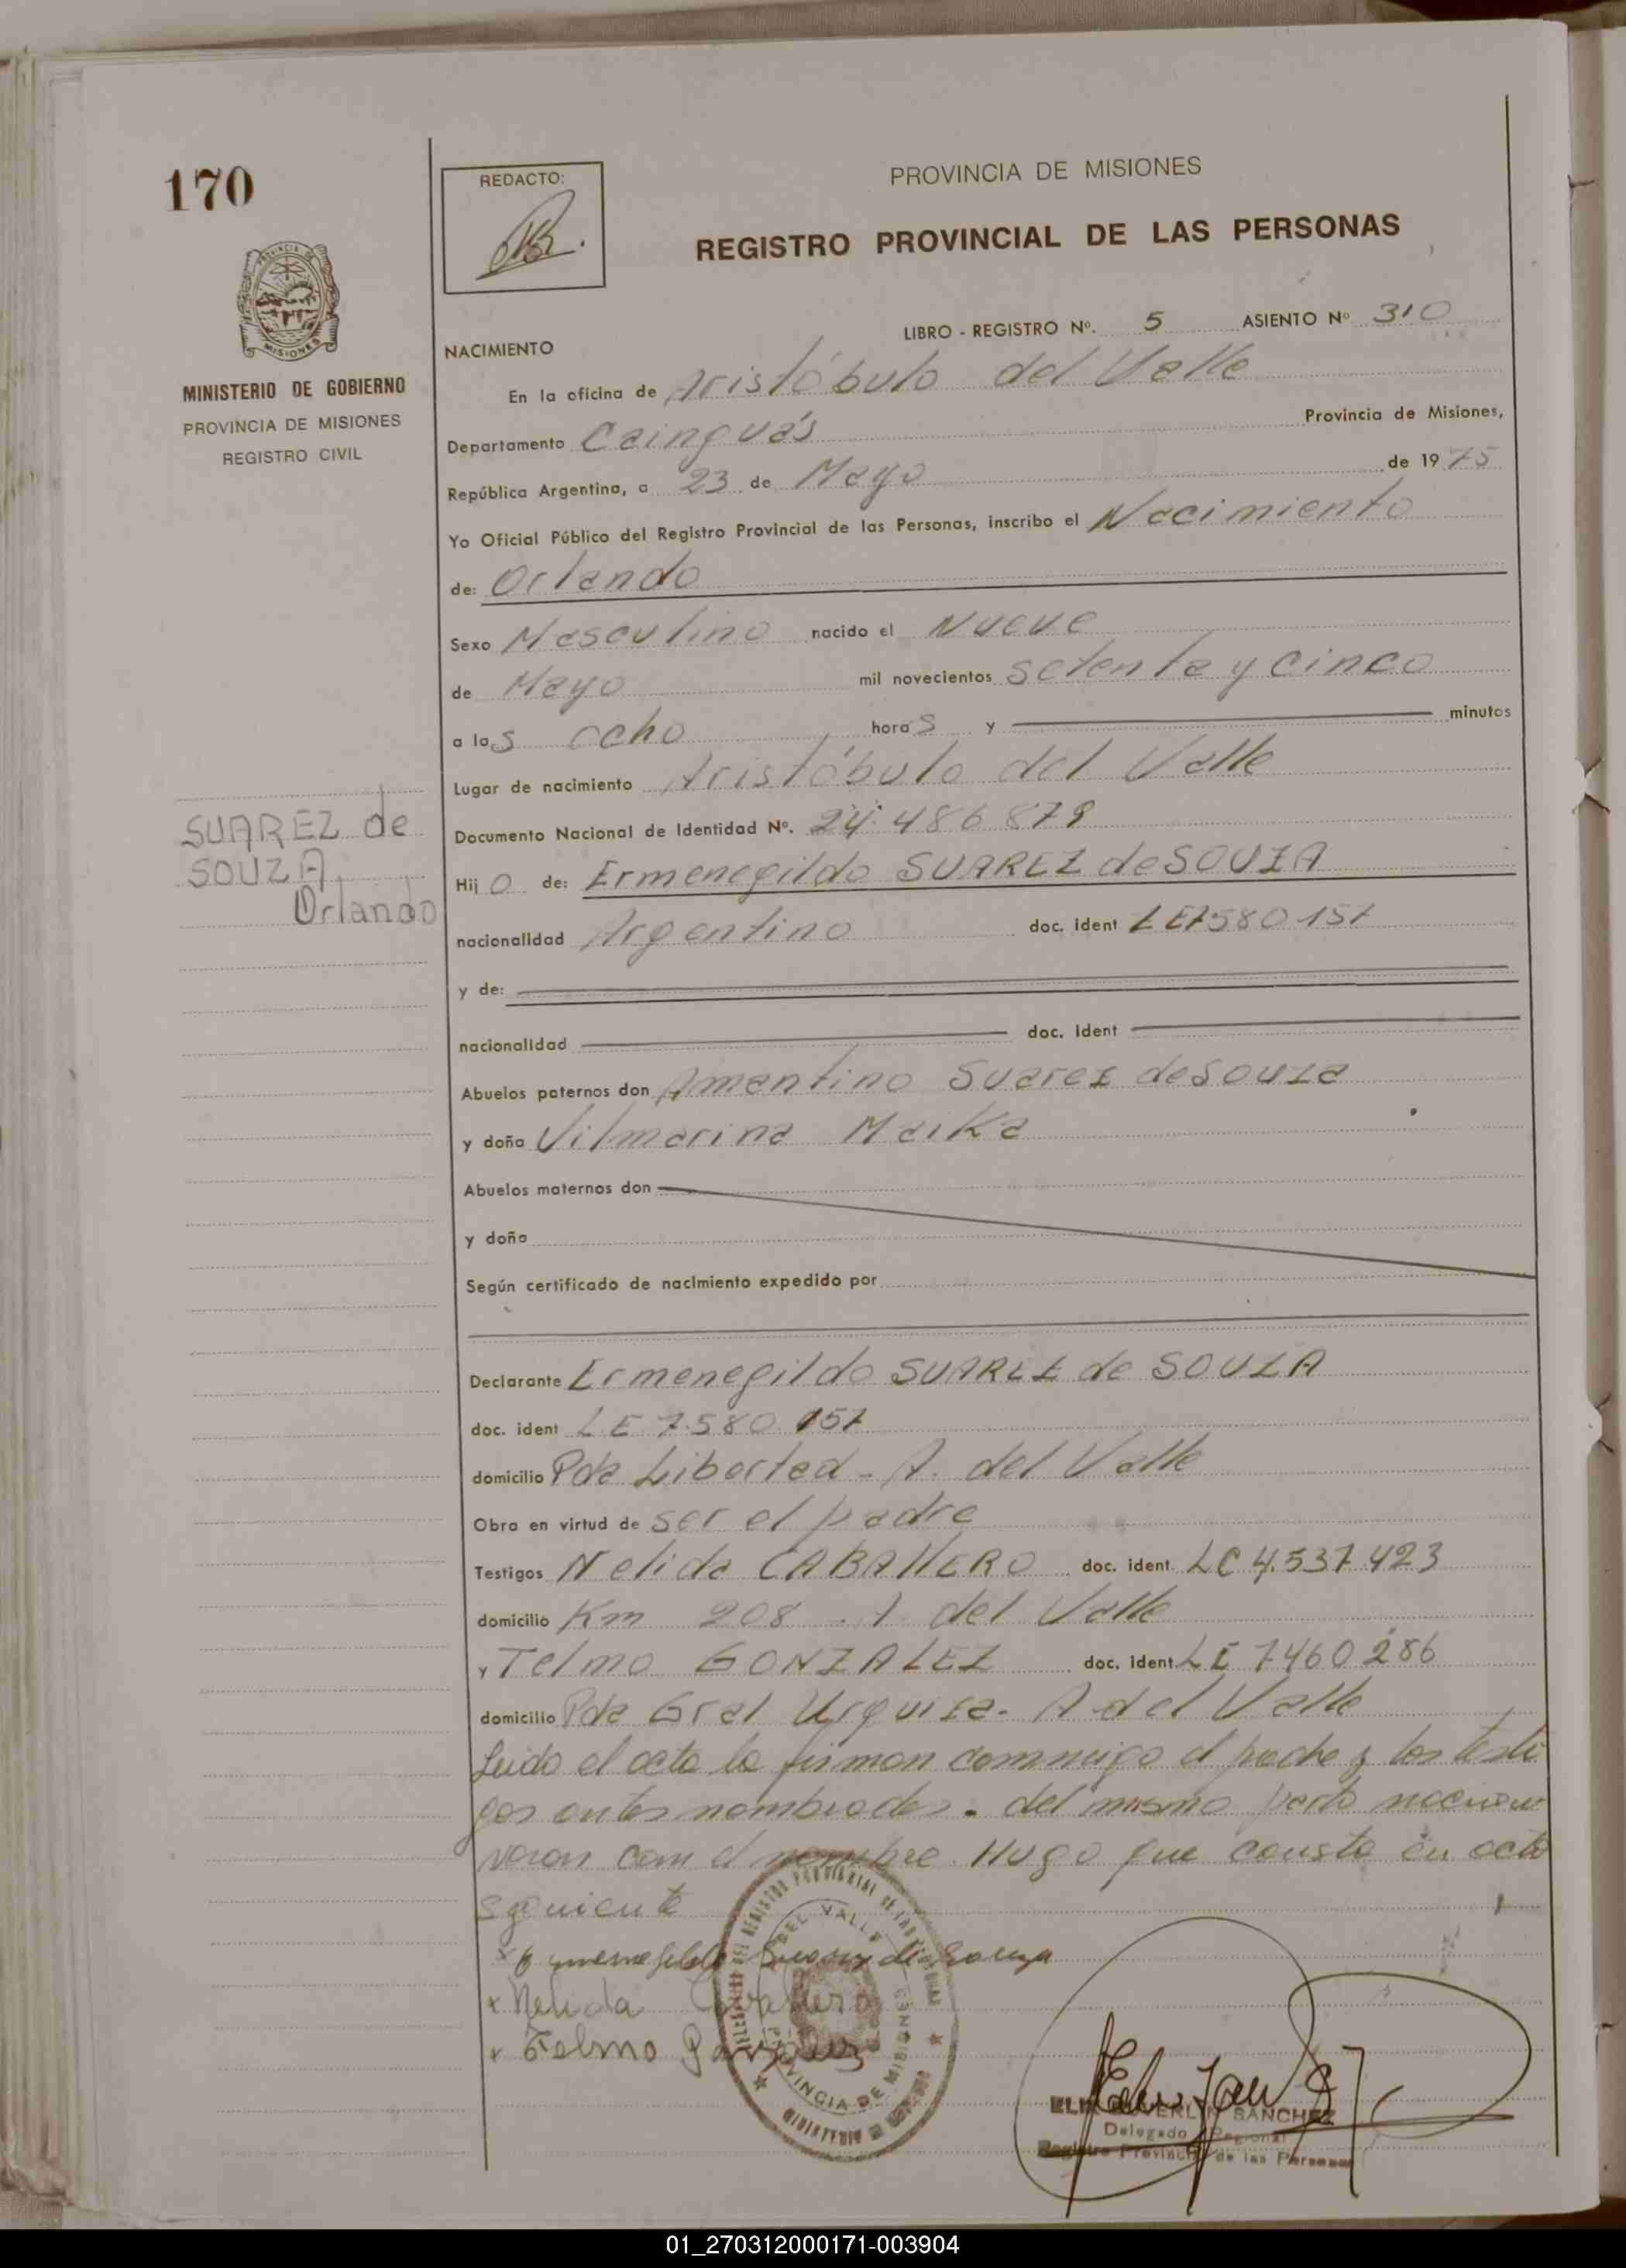 170
REDACTO:
PROVINCIA DE MISIONES
REGISTRO PROVINCIAL DE LAS PERSONAS
MISIONES
MINISTERIO DE GOBIERNO
PROVINCIA DE MISIONES
REGISTRO CIVIL
LIBRO - REGISTRO Nº. 5 ASIENTO Nº 310
NACIMIENTO
En la oficina de Aristóbulo del Valle
Departamento Cainguás Provincia de Misiones,
República Argentina, a 23 de Mayo de 1975
Yo Oficial Público del Registro Provincial de las Personas, inscribo el Nacimiento
de: Orlando
Sexo Masculino nacido el Nueve
de Mayo mil novecientos setenta y cinco
a las ocho horas y minutos
Lugar de nacimiento Aristóbulo del Valle
SUAREZ de
SOUZA
Orlando
Documento Nacional de Identidad Nº. 24.486.879
Hijo de: Ermenegildo SUAREZ de SOUZA
nacionalidad Argentino doc. ident LE 7580 157
y de:
nacionalidad doc. ident
Abuelos paternos don Amantino Suarez de Souza
y doña Vilmarina Maika
Abuelos maternos don
y doña
Según certificado de nacimiento expedido por
Declarante Ermenegildo SUAREZ de SOUZA
doc. ident LE 7.580.157
domicilio Pda Libertad - A. del Valle
Obra en virtud de ser el padre
Testigos Nelida CABALLERO doc. ident. LC 4.537.423
domicilio Km 208 - A. del Valle
y Telmo GONZALEZ doc. ident. LE 7460286
domicilio Pda Gral Urquiza - A del Valle
Leido el acta la firman conmigo el padre y los testi
gos antes nombrados. del mismo parto nació un
varon con el nombre Hugo que consta en acta
siguiente
Ermenegildo Suarez de Souza
x Nelida Caballero
x Telmo Gonzalez
DEL VALLE
PROVINCIA DE MISIONES
SANCHEZ
Delegado Regional
Registro Provincial de las Personas
01_270312000171-003904